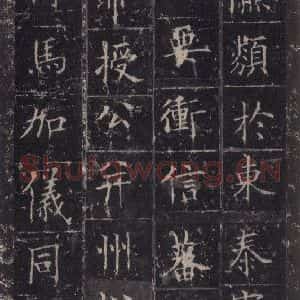 頽於東泰
要衝信蕃
授公并州
馬加儀同
Shufawang.CN